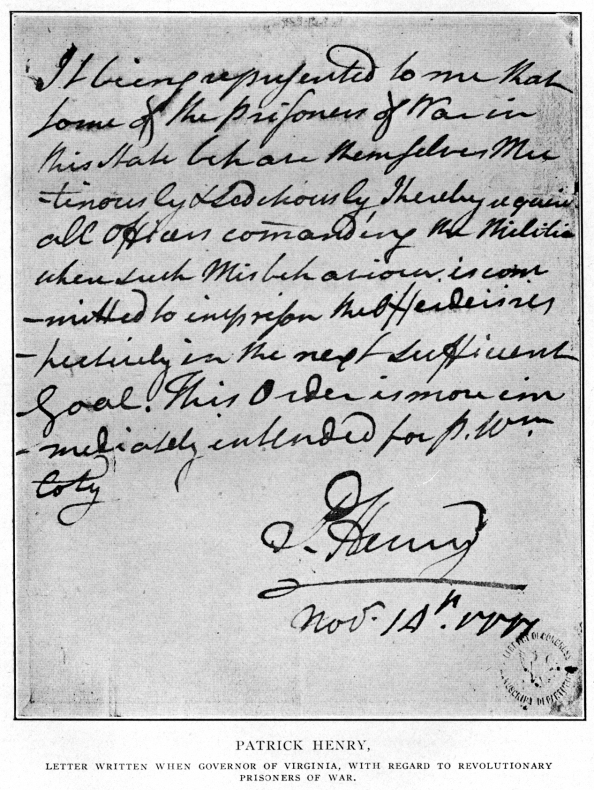 It being represented to me that
some of the Prisoners of War in
this State behave themselves Mu
-tinously & Seditiously I hereby require
all Officers comanding the Militia
when such Misbehaviour is com
-mitted to imprison the Offenders res
-pectively in the next sufficient
Goal. This Order is more im
-mediately intended for P. Wm
Coty
P. Henry
Nov. 14th. 1777
LIBRARY OF CONGRESS
MANUSCRIPT DEPARTMENT
PATRICK HENRY,
LETTER WRITTEN WHEN GOVERNOR OF VIRGINIA, WITH REGARD TO REVOLUTIONARY
PRISONERS OF WAR.